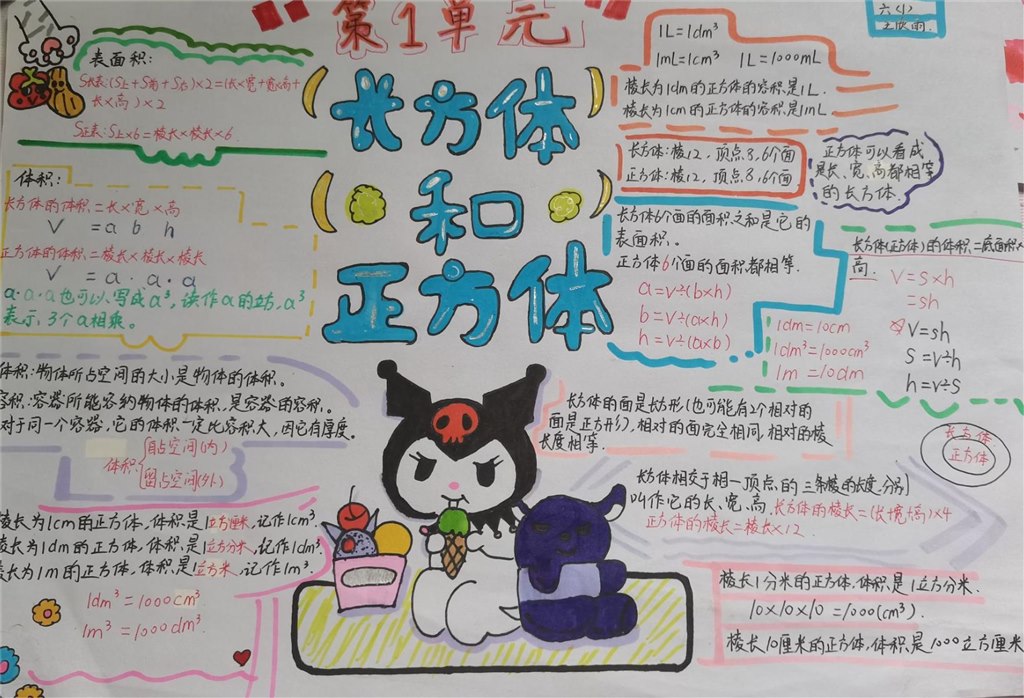 第1单元
长方体
和
正方体
六(1)
表面积:
S长表:(S上+S前+S右)×2=(长×宽+宽×高+
长×高)×2
S正表:S上×6=棱长×棱长×6
体积:
长方体的体积=长×宽×高
V =a b h
正方体的体积=棱长×棱长×棱长
V =a·a·a
a·a·a也可以写成a³,读作a的立方,a³
表示3个a相乘。
体积:物体所占空间的大小是物体的体积。
容积:容器所能容纳物体的体积,是容器的容积。
对于同一个容器,它的体积一定比容积大,因它有厚度。
体积:
自占空间(内)
留占空间(外)
棱长为1cm的正方体,体积是1立方厘米,记作1cm³
棱长为1dm的正方体,体积是1立方分米,记作1dm³
棱长为1m的正方体,体积是1立方米,记作1m³.
1dm³=1000cm³
1m³=1000dm³
1L=1dm³
1mL=1cm³ 1L=1000mL
棱长为1dm的正方体的容积是1L.
棱长为1cm的正方体的容积是1mL
长方体:棱12,顶点8,6个面
正方体:棱12,顶点8,6个面
正方体可以看成
是长、宽、高都相等
的长方体.
长方体6个面的面积之和是它的
表面积。
正方体6个面的面积都相等.
a=v÷(b×h)
b=v÷(a×h)
h=v÷(a×b)
长方体(正方体)的体积=底面积×
高.
V=s×h
=sh
V=sh
S=v÷h
h=v÷S
1dm=10cm
1dm³=1000cm³
1m=10dm
长方体的面是长方形(也可能有2个相对的
面是正方形),相对的面完全相同,相对的棱
长度相等.
长方体
正方体
长方体相交于相一顶点的三条棱的长度分别
叫作它的长、宽、高.长方体的棱长=(长+宽+高)×4
正方体的棱长=棱长×12
棱长1分米的正方体,体积是1立方分米.
10×10×10=1000(cm³).
棱长10厘米的正方体,体积是1000立方厘米